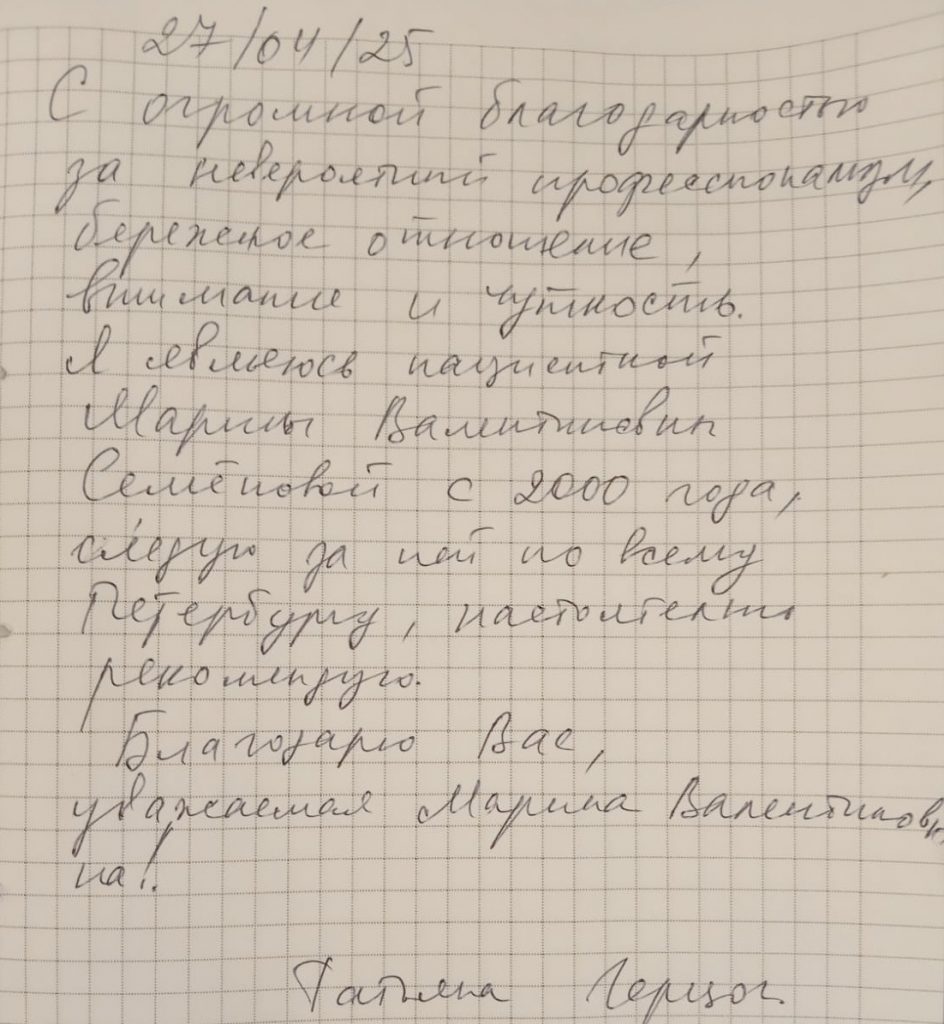 27/04/25
С огромной благодарностью
за невероятный профессионализм,
бережное отношение,
внимание и чуткость.
Я являюсь пациенткой
Марины Валентиновны
Семёновой с 2000 года,
следую за ней по всему
Петербургу, настоятельно
рекомендую.
Благодарю Вас,
уважаемая Марина Валентиновн
на!
Татьяна Герцог.